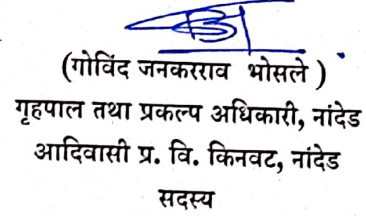 (गोविंद जनकरराव भोसले )
गृहपाल तथा प्रकल्प अधिकारी, नांदेड
आदिवासी प्र. वि. किनवट, नांदेड
सदस्य